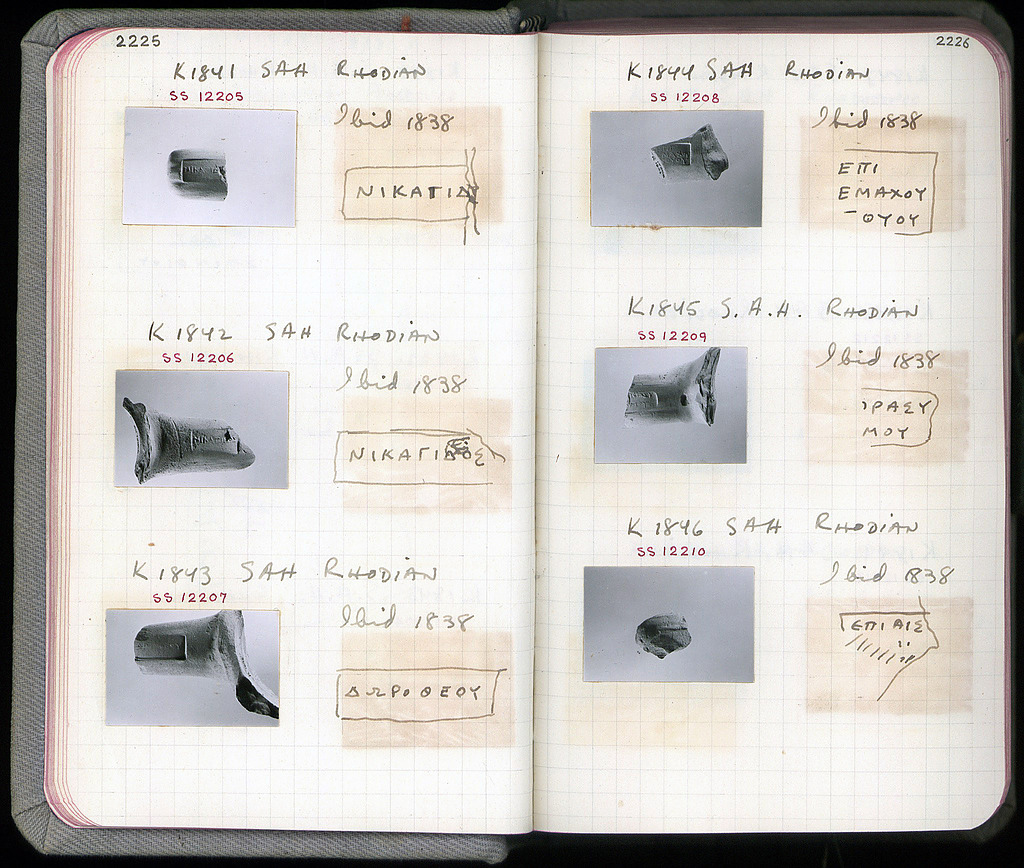 2225
K1841 SAH RHODIAN
SS 12205
Ibid 1838
ΝΙΚΑΓΙΔ
K1842 SAH RHODIAN
SS 12206
Ibid 1838
ΝΙΚΑΓΙΔΟΣ
K1843 SAH RHODIAN
SS 12207
Ibid 1838
ΔΩΡΟΘΕΟΥ
2226
K1844 SAH RHODIAN
SS 12208
Ibid 1838
ΕΠΙ
ΕΜΑΧΟΥ
ΘΥΟΥ
K1845 S.A.H. RHODIAN
SS 12209
Ibid 1838
ΡΑΣΥ
ΜΟΥ
K1846 SAH RHODIAN
SS 12210
Ibid 1838
ΕΠΙ ΑΙΣ